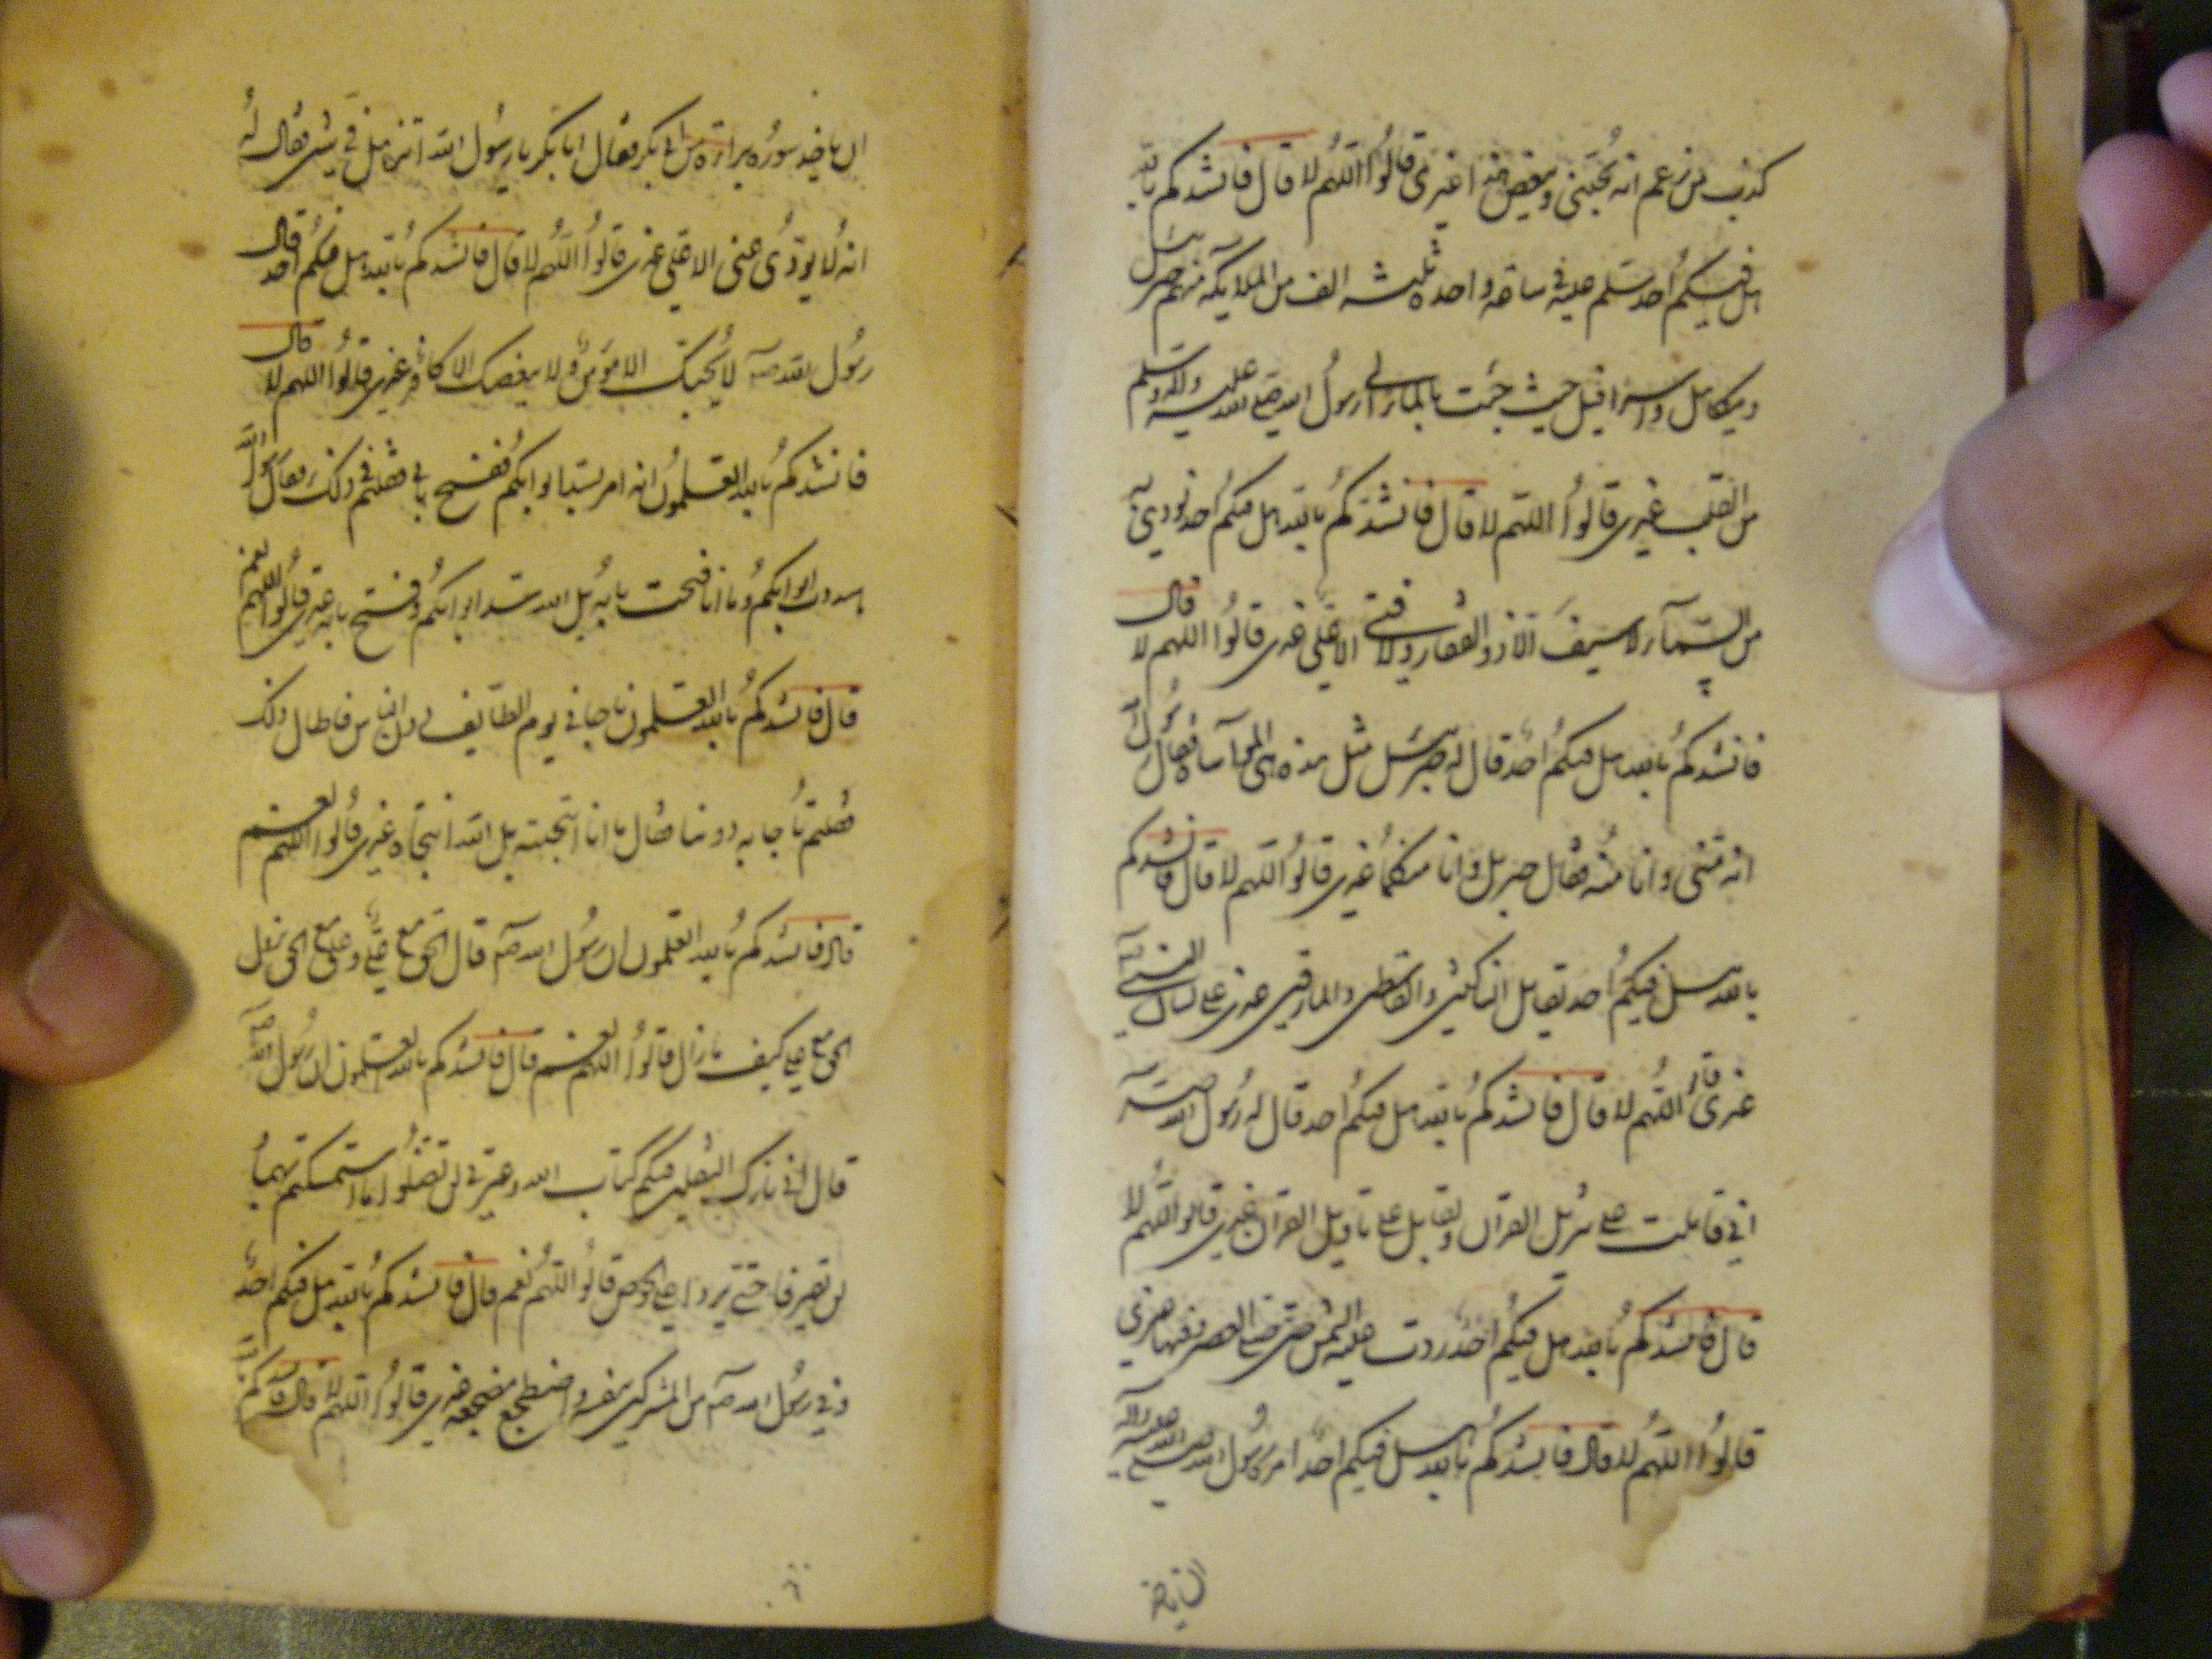 كذب من زعم انه يحبني ويبغض هذا غيري قالوا اللهم لا قال فانشدكم بالله
هل فيكم احد سلم عليه في ساعة واحدة ثلثة الف من الملايكة منهم جبرئيل
وميكائيل واسرافيل حيث جئت بالماء الى رسول الله صلى الله عليه واله وسلم
من القليب غيري قالوا اللهم لا قال فانشدكم بالله هل فيكم احد نودي به
من السماء لا سيف الا ذو الفقار ولا فتى الا علي غيري قالوا اللهم لا قال
فانشدكم بالله هل فيكم احد قال له جبرئيل مثل هذه هي المواساة فقال رسول الله
انه مني وانا منه فقال جبرئيل وانا منكما غيري قالوا اللهم لا قال فانشدكم
بالله هل فيكم احد يقاتل الناكثين والقاسطين والمارقين غيري على لسان النبي
غيري قالوا اللهم لا قال فانشدكم بالله هل فيكم احد قال له رسول الله
اني قاتلت على تنزيل القران وتقاتل على تاويل القران غيري قالوا اللهم لا
قال فانشدكم بالله هل فيكم احد ردت عليه الشمس حتى صلى العصر في وقتها غيري
قالوا اللهم لا قال فانشدكم بالله هل فيكم احد امر رسول الله صلى الله عليه واله
ان ياخذ
ان ياخذ سورة براءة من ابي بكر فقال ابا بكر يا رسول الله انزل في شيء فقال له
انه لا يؤدي عني الا علي غيري قالوا اللهم لا قال فانشدكم بالله هل فيكم احد قال
رسول الله لا يحبك الا مؤمن ولا يبغضك الا كافر غيري قالوا اللهم لا قال
فانشدكم بالله اتعلمون انه امر بسد ابوابكم وفتح بابي فقلتم في ذلك فقال رسول الله
ما سددت ابوابكم وما انا فتحت بابه بل الله سد ابوابكم وفتح بابه غيري قالوا اللهم نعم
قال فانشدكم بالله اتعلمون ناجاني يوم الطائف دون الناس فاطال ذلك
فقلتم ناجا به دوننا فقال ما انا انتجيته بل الله انتجاه غيري قالوا اللهم نعم
قال فانشدكم بالله اتعلمون ان رسول الله قال الحق مع علي وعلي مع الحق يزول
الحق مع علي كيف ما زال قالوا اللهم نعم قال فانشدكم بالله اتعلمون ان رسول الله
قال اني تارك الثقلين فيكم كتاب الله وعترتي لن تضلوا ما استمسكتم بهما
لن يفترقا حتى يردا علي الحوض قالوا اللهم نعم قال فانشدكم بالله هل فيكم احد
وقي رسول الله من المشركين بنفسه واضطجع مضجعه غيري قالوا اللهم لا قال فانشدكم بالله